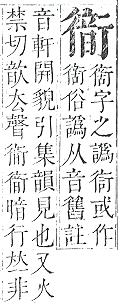 字之譌或作
俗譌从音舊註
音軒開貌引集韻見也又火
禁切歆去聲暗行𠀤非